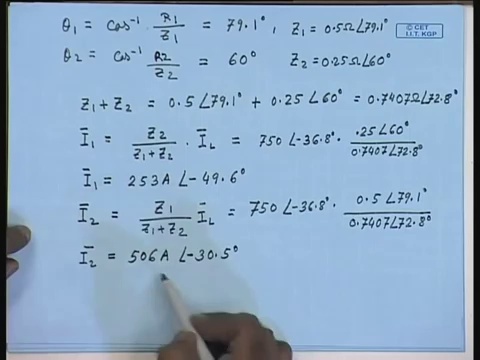 θ1 = cos⁻¹ R1/Z1 = 79.1°, Z1 = 0.5Ω∠79.1°
© CET
I.I.T. KGP
θ2 = cos⁻¹ R2/Z2 = 60° Z2 = 0.25Ω∠60°
Z1+Z2 = 0.5∠79.1° + 0.25∠60° = 0.7407Ω∠72.8°
Ī1 = Z2/(Z1+Z2) · ĪL = 750∠-36.8° · .25∠60°/0.7407∠72.8°
Ī1 = 253A∠-49.6°
Ī2 = Z1/(Z1+Z2) ĪL = 750∠-36.8° · 0.5∠79.1°/0.7407∠72.8°
Ī2 = 506A∠-30.5°